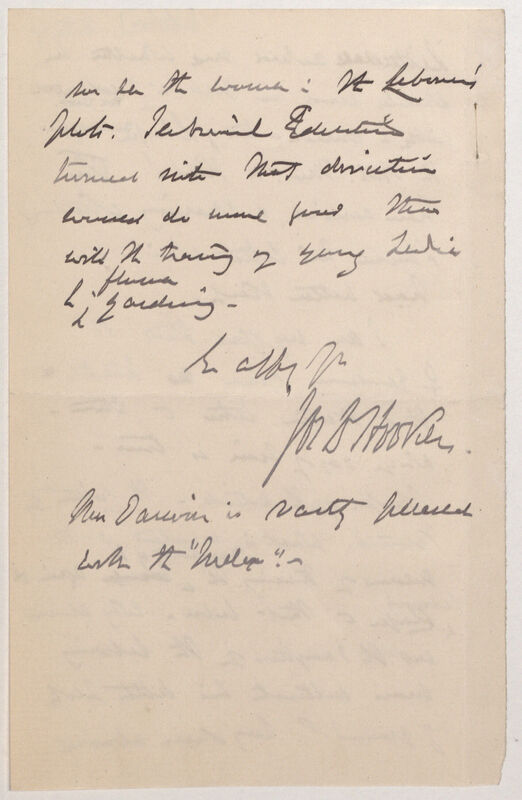 the women: the Labourer's
plots. Technical Education
turned into that direction
would do more good than
will the training of young Ladies
in flower
gardening.
Ever affly yrs
Jos D Hooker.
Mrs Darwin is vastly pleased
with the "Index".